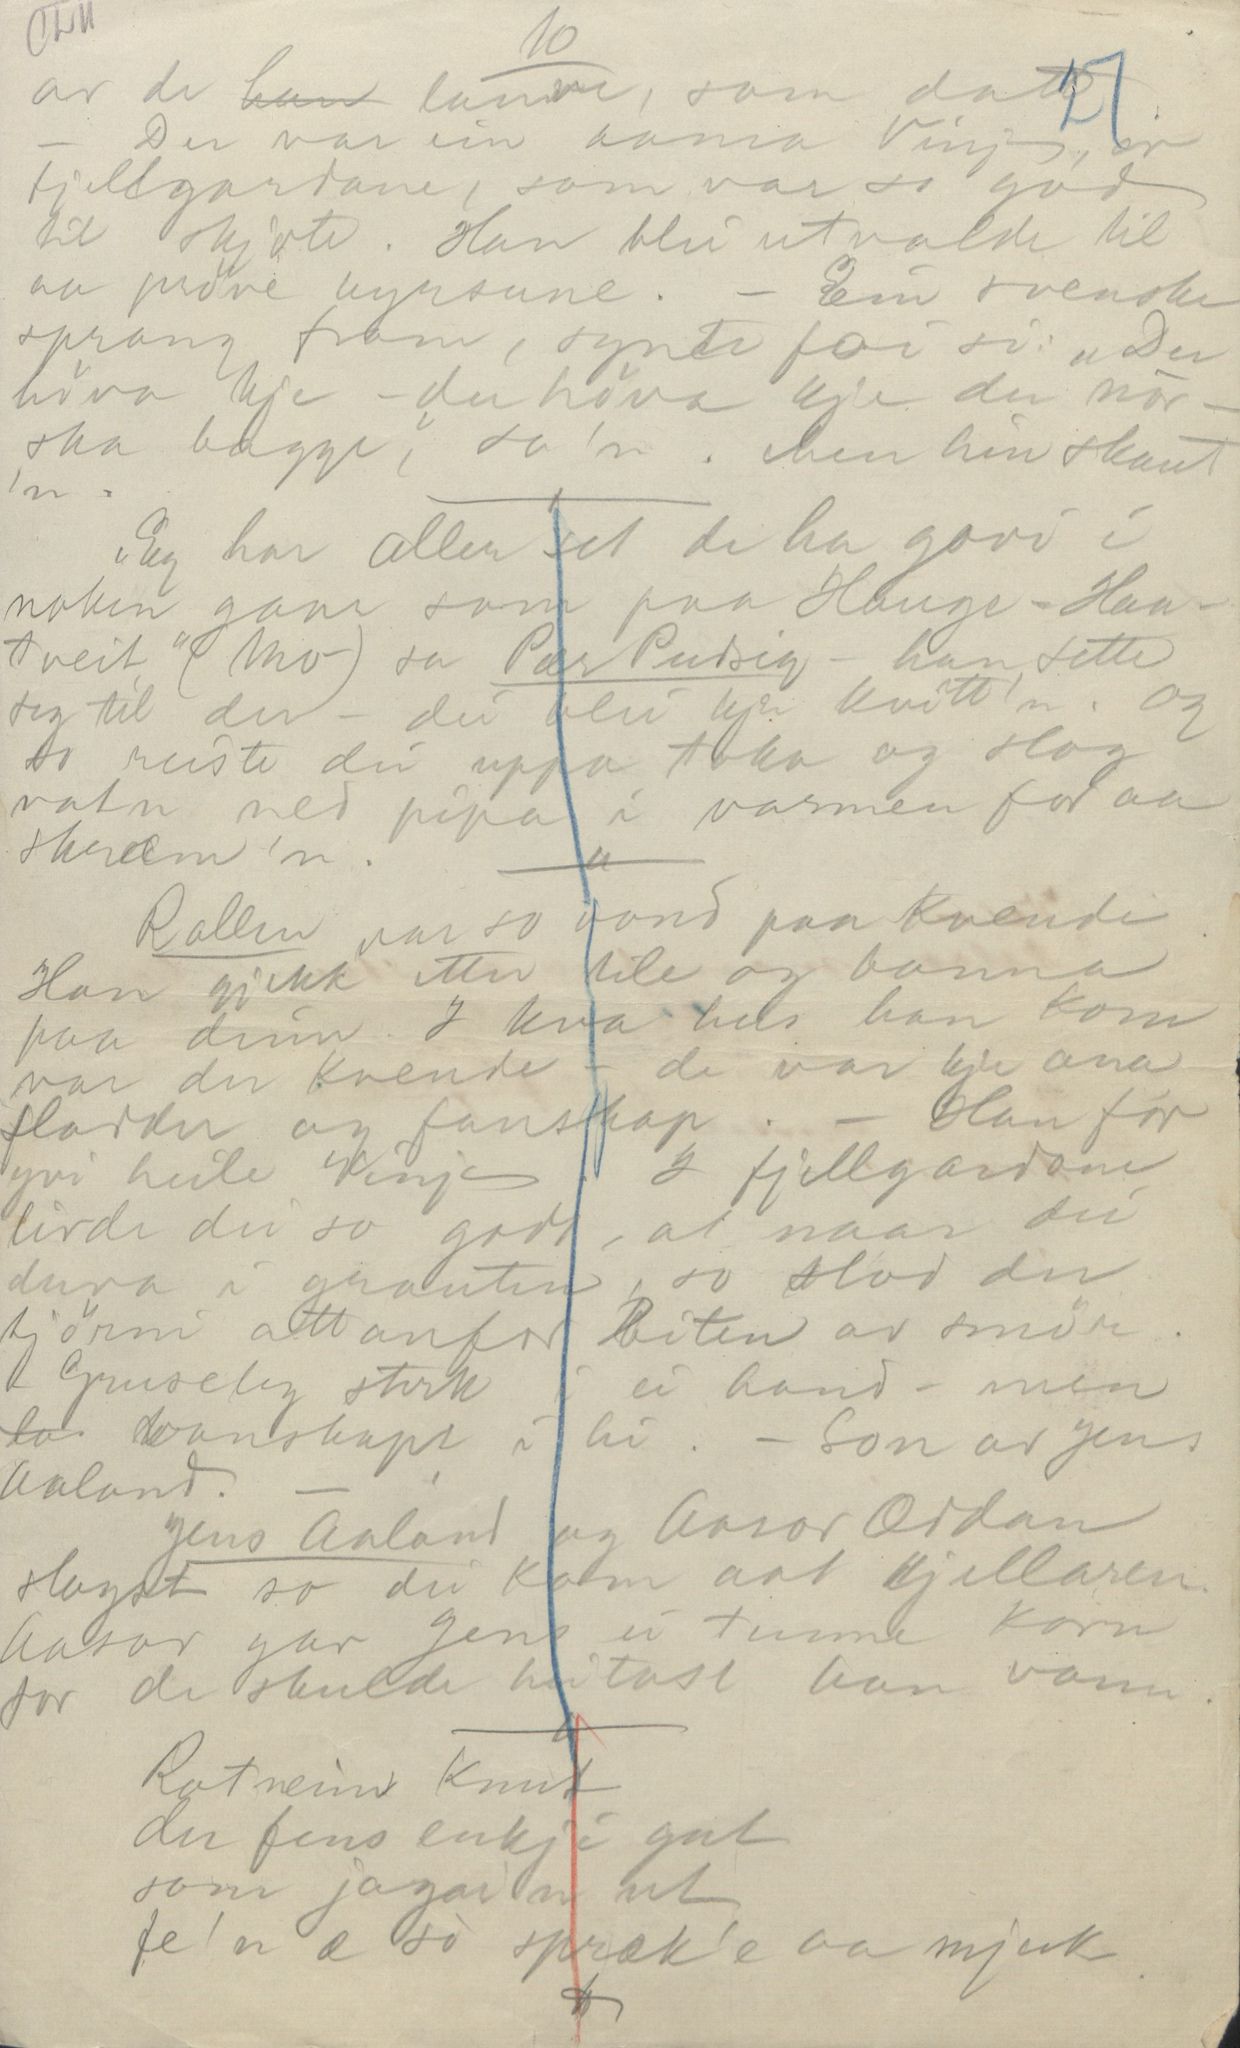 10
27
av de han lauvre, som datt
— Der var ein aanna Vinje, av
fjellgardane, som var so god
til skjote. Han blei utvalde til
aa pröve byrsune. — Ein svenske
sprang fram, synte fai si: „Du
höva kje – du höva kje du nor-
ska bagge," sa 'n. Men hin skaut
'n.
„Eg har aller set de ha govi i
noken gaar som paa Hauge-Haa-
tveit" (Mo) sa Pær Pudsig – han sette
seg til der – dei blei kje kvitt 'n. Og
so reiste dei uppa toka og slog
vatn ned pipa i varmen for aa
skræm 'n.
Rallen var so vond paa Kvende.
Han gjekk etter hile og banna
paa deim. I kva hus han kom
var der Kvende – de var kje ana
fladder og fanskap. — Han for
yvi heile Vinje. I fjellgardane
livde dei so godt, at naar dei
duva i grauten, so stod der
tjörni attanfor biten av smör.
Gruseleg sterk i ei hand – men
la vanskapt i hi. – Son av Jens
Aaland. —
Jens Aaland og Aasov Oddan
slogst so dei kom aat kjellaren.
Aasov gav Jens ei tunne korn
for de skulde heitast han vann.
Rotneim Knut
der fens enkji gut
som jagai 'n ut
fe 'n æ so spræk 'e aa mjuk.